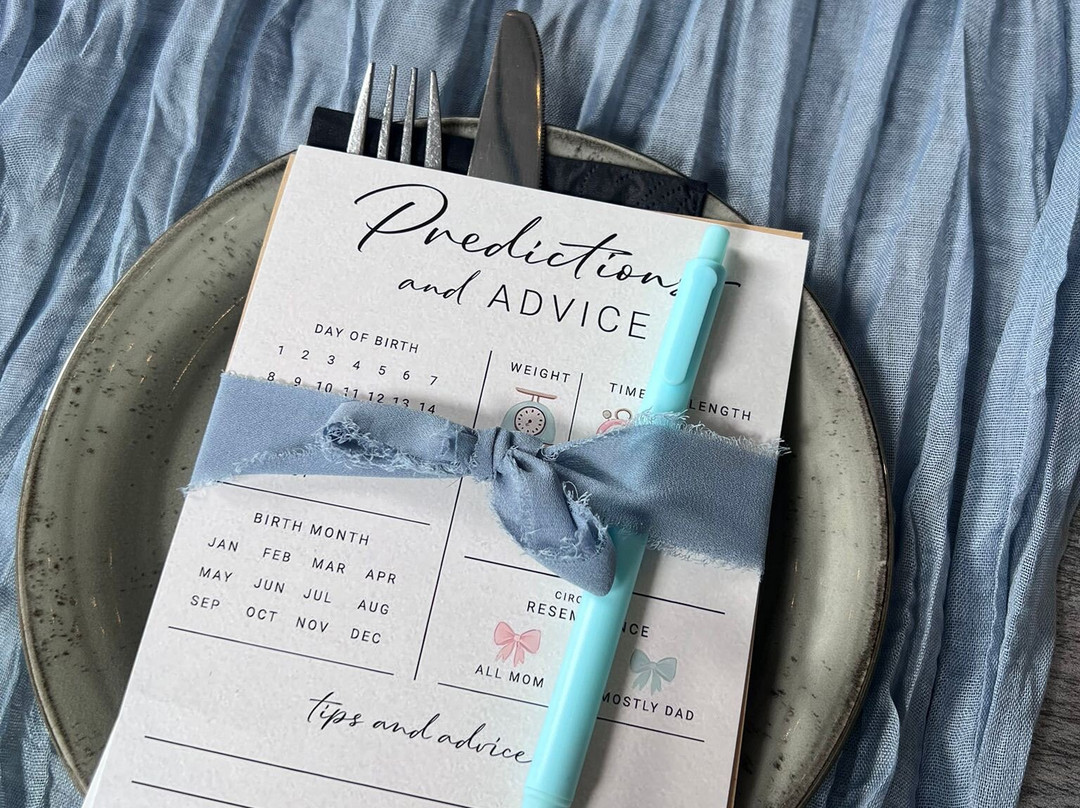 Predictions
and ADVICE
DAY OF BIRTH
1 2 3 4 5 6 7
8 9 10 11 12 13 14
WEIGHT
TIME
LENGTH
BIRTH MONTH
JAN FEB MAR APR
MAY JUN JUL AUG
SEP OCT NOV DEC
ALL MOM
MOSTLY DAD
tips and advice